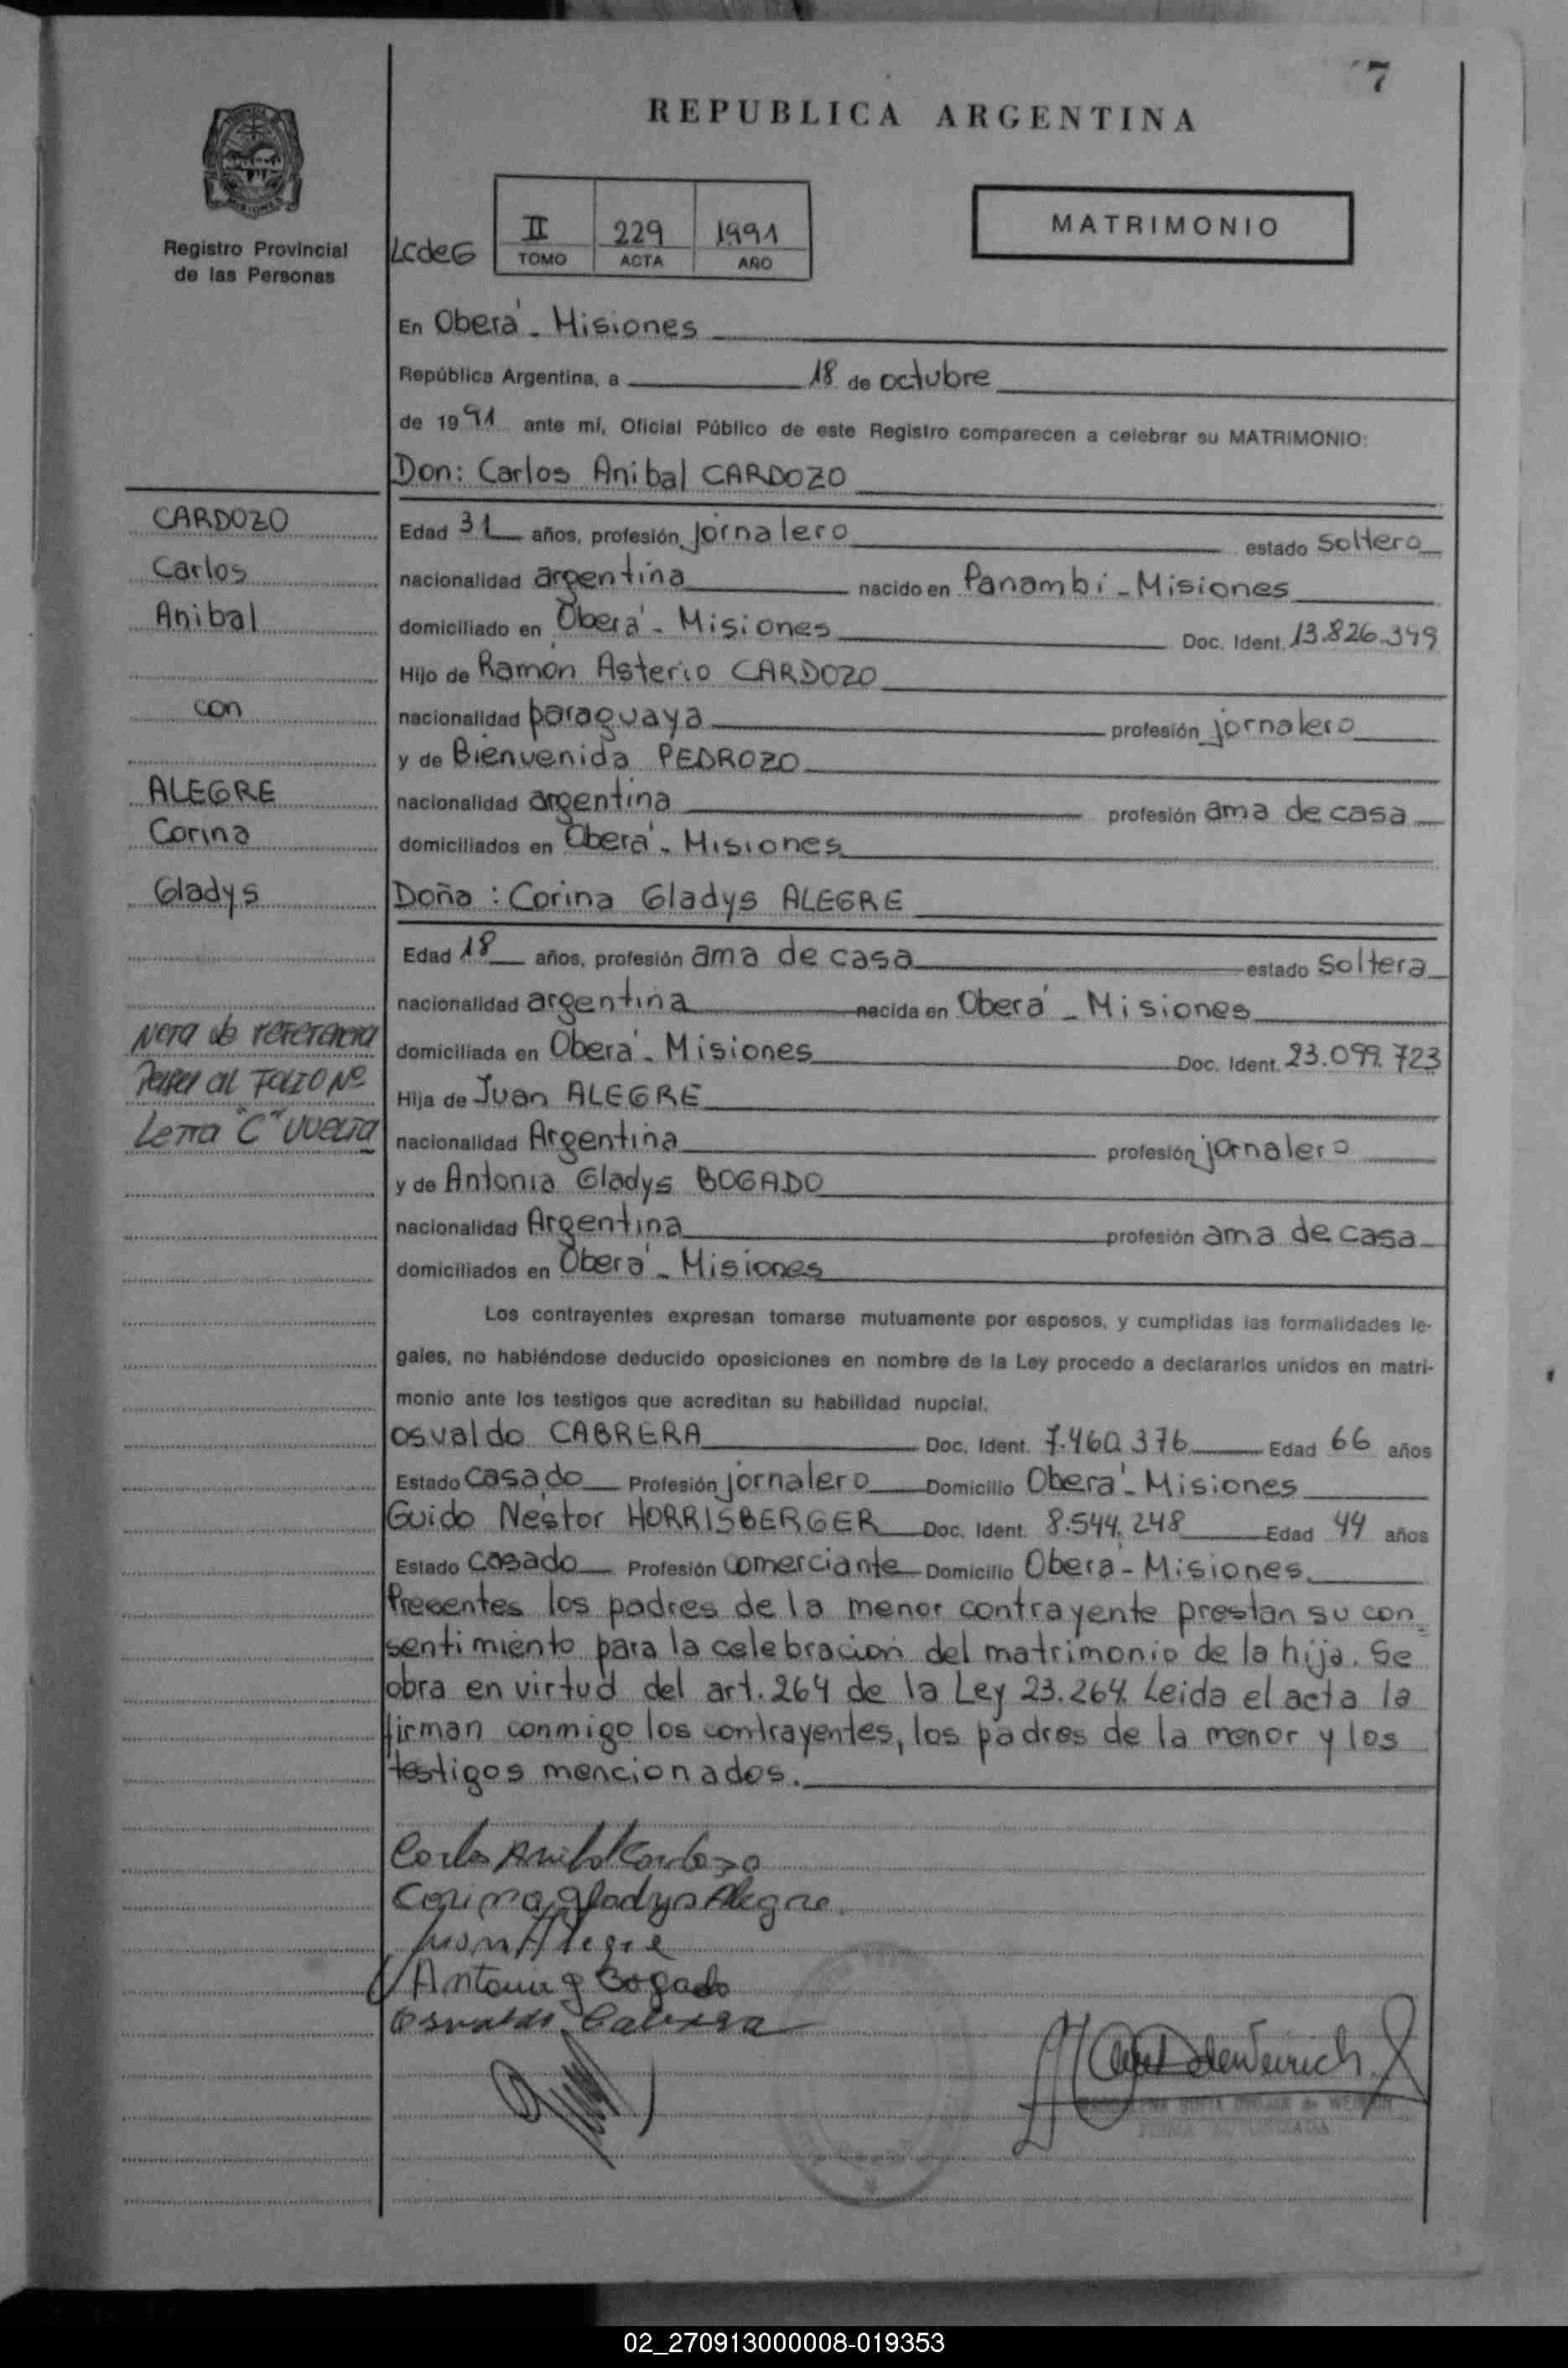 7
REPUBLICA ARGENTINA
MISIONES
Registro Provincial
de las Personas
LCdeG
II 229 1991
TOMO ACTA AÑO
MATRIMONIO
En Oberá - Misiones
República Argentina, a 18 de octubre
de 1991 ante mí, Oficial Público de este Registro comparecen a celebrar su MATRIMONIO:
Don: Carlos Anibal CARDOZO
CARDOZO
Carlos
Anibal
con
ALEGRE
Corina
Gladys
Nota de referencia
Pasa al FOLIO Nº
Letra "C" vuelta
Edad 31 años, profesión jornalero estado soltero
nacionalidad argentina nacido en Panambí - Misiones
domiciliado en Oberá - Misiones Doc. Ident. 13.826.349
Hijo de Ramón Asterio CARDOZO
nacionalidad paraguaya profesión jornalero
y de Bienvenida PEDROZO
nacionalidad argentina profesión ama de casa
domiciliados en Oberá - Misiones
Doña : Corina Gladys ALEGRE
Edad 18 años, profesión ama de casa estado soltera
nacionalidad argentina nacida en Oberá - Misiones
domiciliada en Oberá - Misiones Doc. Ident. 23.099.723
Hija de Juan ALEGRE
nacionalidad Argentina profesión jornalero
y de Antonia Gladys BOGADO
nacionalidad Argentina profesión ama de casa
domiciliados en Oberá - Misiones
Los contrayentes expresan tomarse mutuamente por esposos, y cumplidas las formalidades le-
gales, no habiéndose deducido oposiciones en nombre de la Ley procedo a declararlos unidos en matri-
monio ante los testigos que acreditan su habilidad nupcial.
Osvaldo CABRERA Doc. Ident. 7.460.376 Edad 66 años
Estado casado Profesión jornalero Domicilio Oberá - Misiones
Guido Nestor HORRISBERGER Doc. Ident. 8.544.248 Edad 44 años
Estado casado Profesión comerciante Domicilio Obera - Misiones
Presentes los padres de la menor contrayente prestan su con=
sentimiento para la celebración del matrimonio de la hija. Se
obra en virtud del art. 264 de la Ley 23.264. Leida el acta la
firman conmigo los contrayentes, los padres de la menor y los
testigos mencionados.
Carlos Anibal Cardozo
Corina Gladys Alegre
Juan Alegre
Antonia G Bogado
Osvaldo Cabrera
02_270913000008-019353